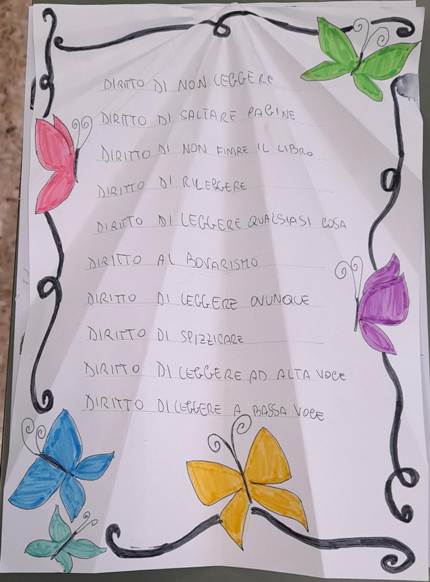 DIRITTO DI NON LEGGERE
DIRITTO DI SALTARE PAGINE
DIRITTO DI NON FINIRE IL LIBRO
DIRITTO DI RILEGGERE
DIRITTO DI LEGGERE QUALSIASI COSA
DIRITTO AL BOVARISMO
DIRITTO DI LEGGERE OVUNQUE
DIRITTO DI SPIZZICARE
DIRITTO DI LEGGERE AD ALTA VOCE
DIRITTO DI LEGGERE A BASSA VOCE